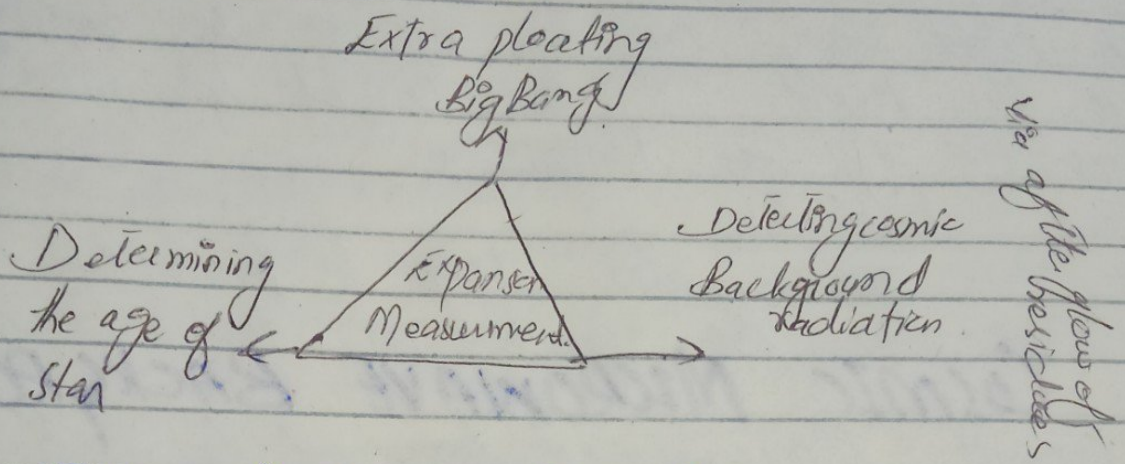 Extra ploating
Big Bang.
Determining
the age of
star
Expanser
Measurment.
Detecting cosmic
Background
radiation.
via after glow of
besidues